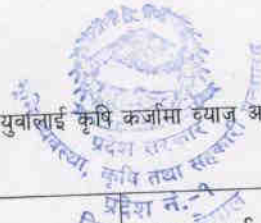 युवालाई कृषि कर्जामा व्याज अ
प्रदेश सरकार
व्यवस्था, कृषि तथा सहकारी
प्रदेश नं.-१